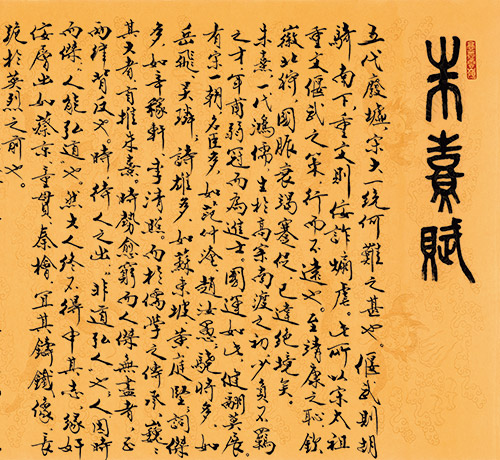 朱熹賦
五代廢墟宋大一統何難之甚也。偃武則胡
騎南下,重文則佞詐煽虐。此所以宋太祖
重文偃武之策行而不遠也。至靖康之恥欽
徽北狩,國脈衰竭蹇促已達絕境矣。
朱熹一代鴻儒生於高宗南渡之初少負不羈
之才年甫弱冠而為進士。國運如此,健翮莫展。
有宋一朝名臣多,如范仲淹趙汝愚,驍將多,如
岳飛吳璘;詩雄多,如蘇東坡、黃庭堅;詞傑
多,如辛稼軒、李清照。而於儒學之傳承,巍巍
其大者首推朱熹。時勢愈窮而人傑無盡者,正
兩維背反也。時待人之出,非道弘人也;人因時
而傑,人能弘道也。然大人終不得申其志,緣奸
佞層出如蔡京童貫、秦檜,宜其鑄鐵像長
跪於英烈之前也。